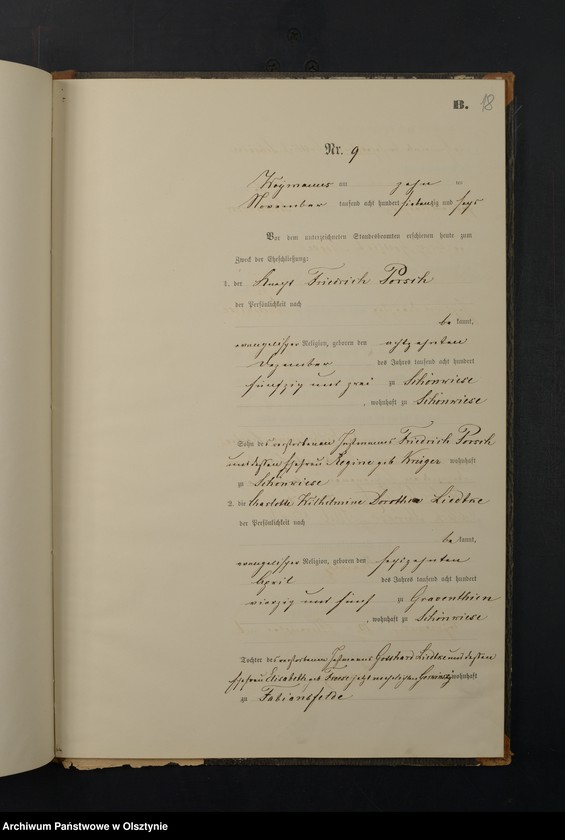 B. 18
Nr. 9
am zehn ten
November tausend acht hundert siebenzig und sechs
Vor dem unterzeichneten Standesbeamten erschienen heute zum
Zweck der Eheschließung:
1. der Knecht Friedrich Porsch
der Persönlichkeit nach
be kannt,
evangelischer Religion, geboren den achtzehnten
Dezember des Jahres tausend acht hundert
fünfzig und zwei zu Schönwiese
, wohnhaft zu Schönwiese
Sohn des verstorbenen Instmanns Friedrich Porsch
und dessen Ehefrau Regine geb. Krüger wohnhaft
zu Schönwiese
2. die Charlotte Wilhelmine Dorothea Liedtke
der Persönlichkeit nach
be kannt,
evangelischer Religion, geboren den sechszehnten
April des Jahres tausend acht hundert
vierzig und fünf zu Graventhien
, wohnhaft zu Schönwiese
Tochter des verstorbenen Instmanns Gotthard Liedtke und dessen
Ehefrau Elisabeth geb. jetzt wohnhaft
zu Fabiansfelde
Archiwum Państwowe w Olsztynie